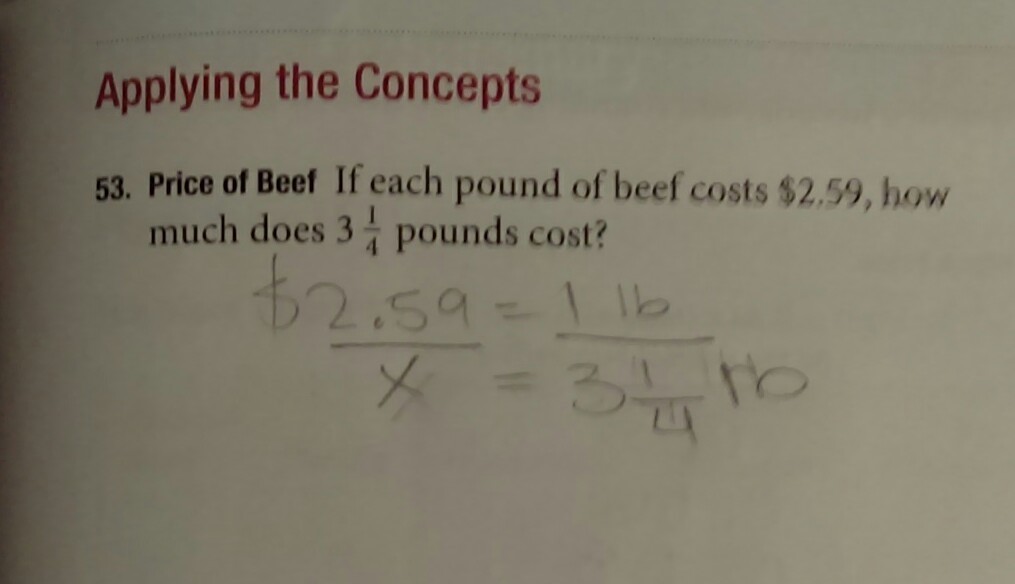 Applying the Concepts
53. Price of Beef If each pound of beef costs $2.59, how
much does 3 1/4 pounds cost?
$2.59 = 1 lb
x = 3 1/4 lb